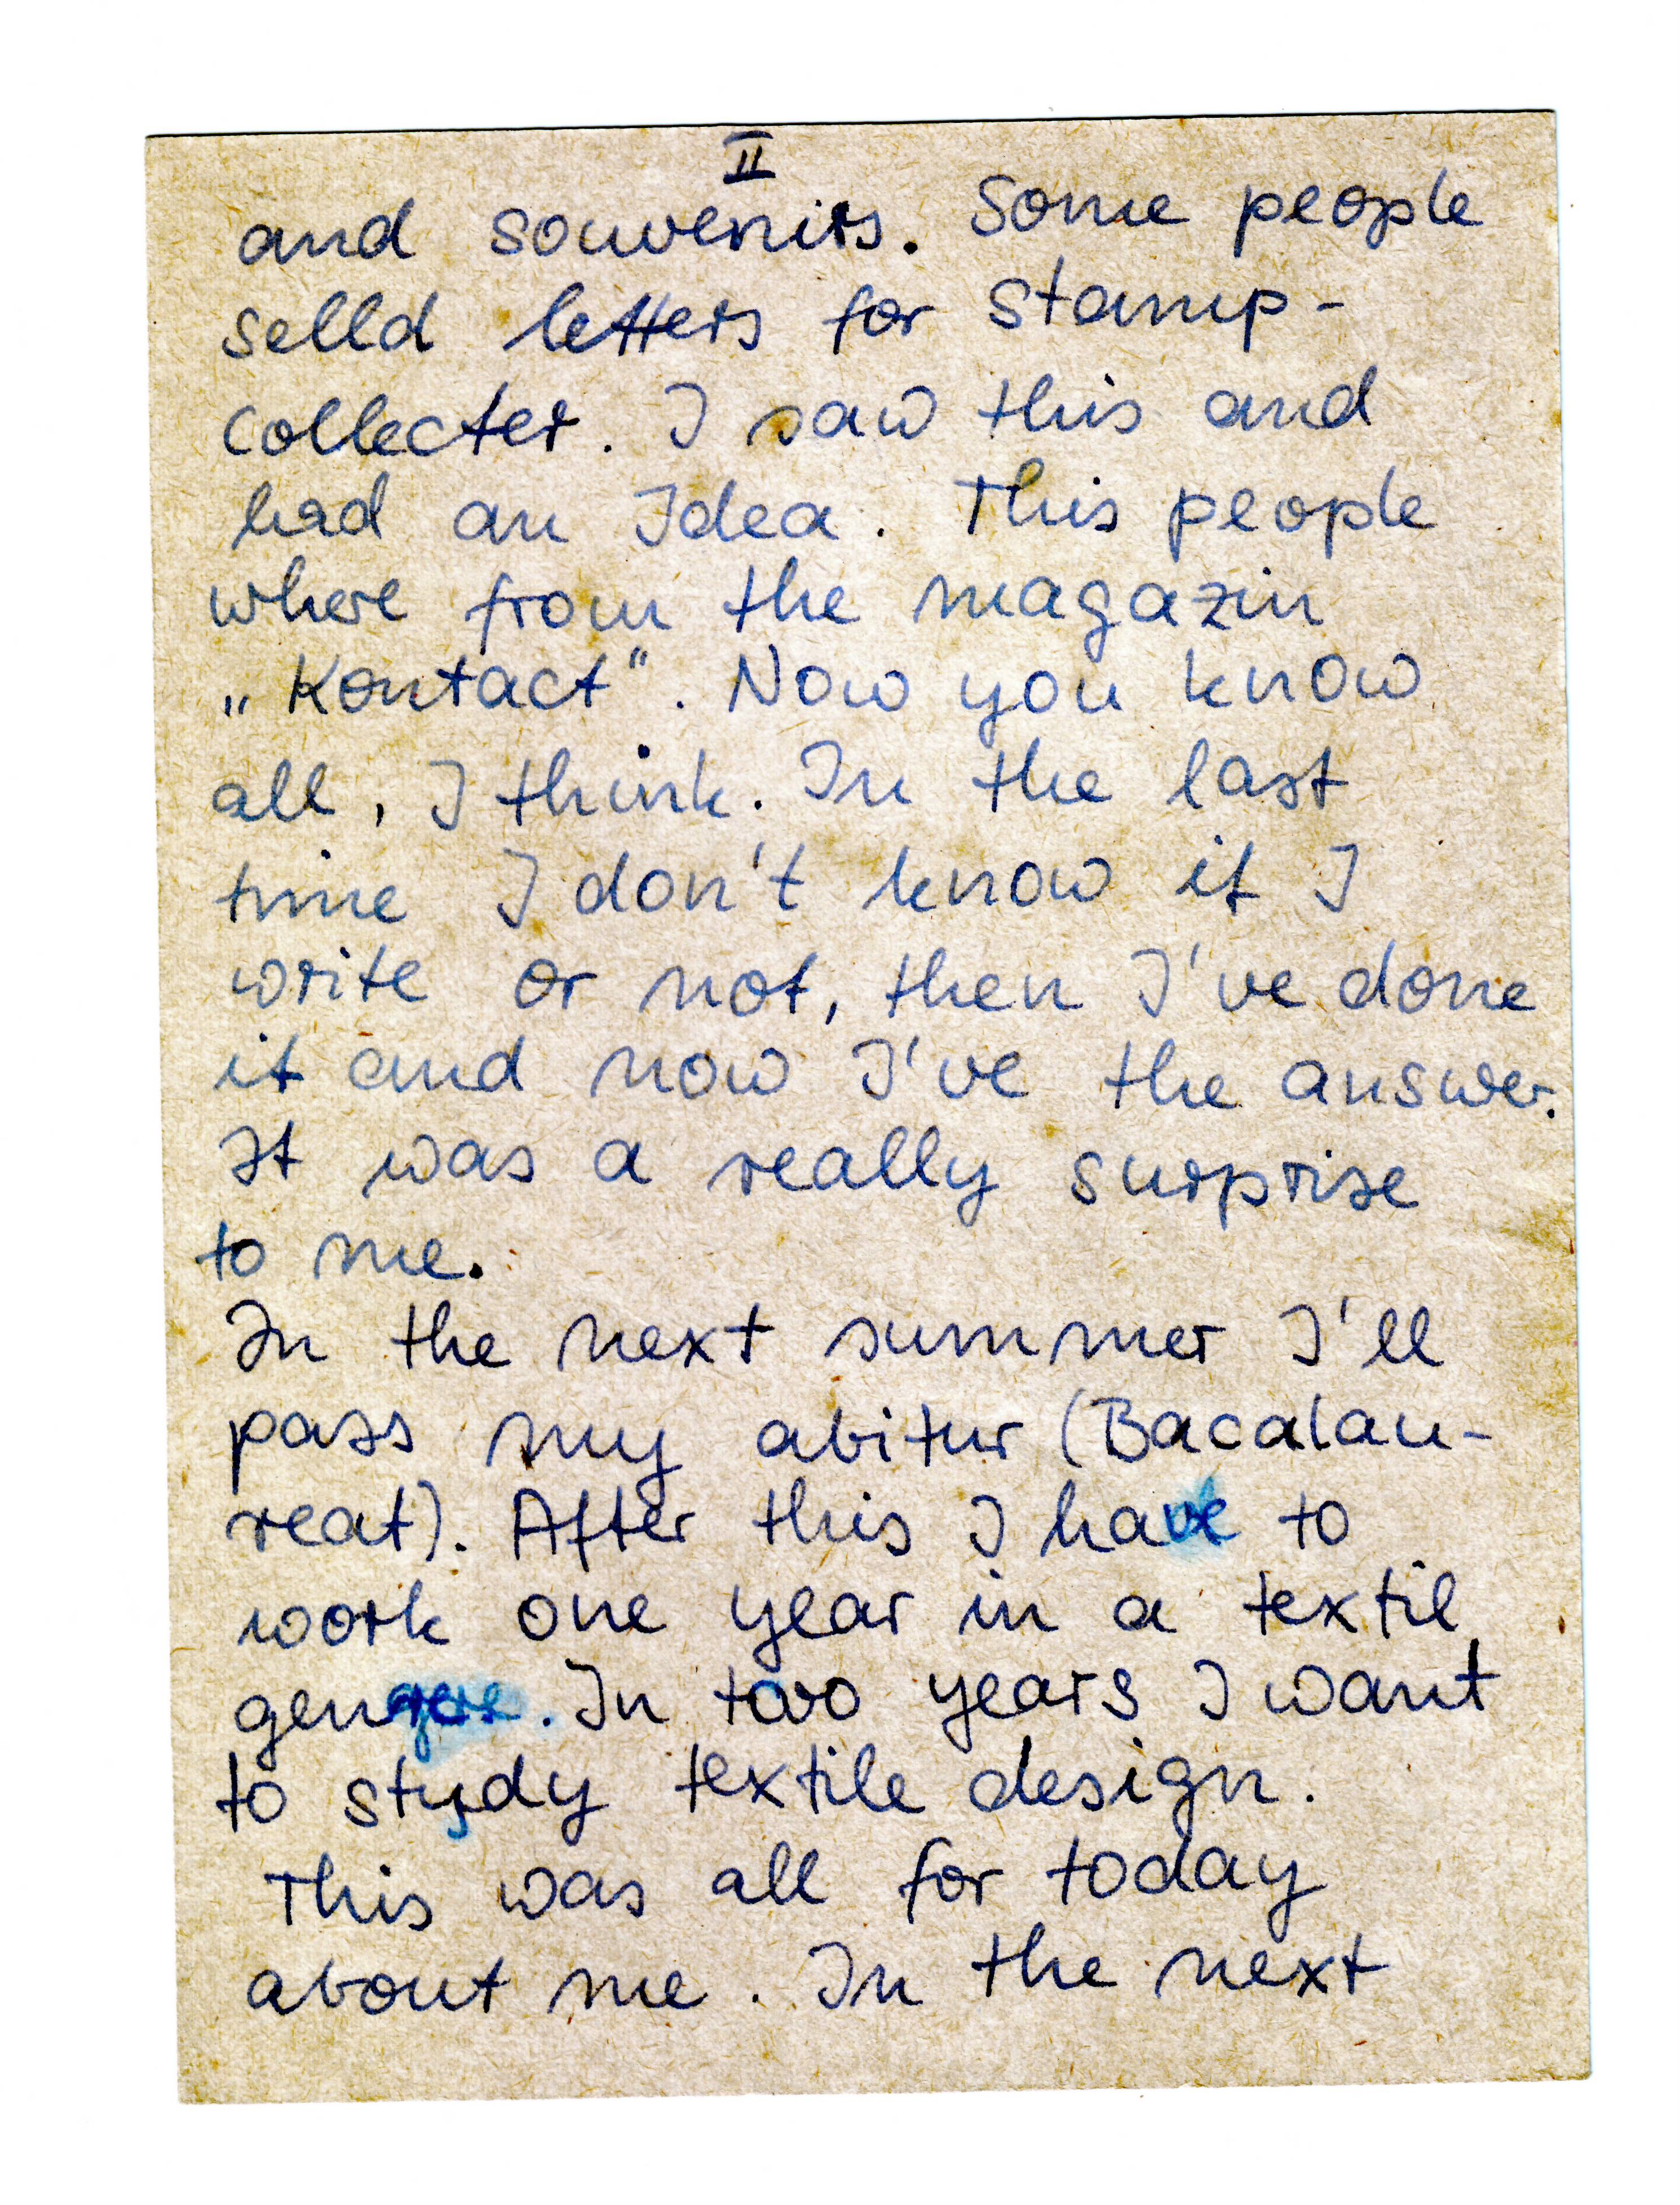 II
and souvenirs. Some people
selld letters for stamp-
collecter. I saw this and
had an Idea. This people
where from the magazin
„Kontact“. Now you know
all, I think. In the last
time I don't know if I
write or not, then I've done
it and now I've the answer.
It was a really surprise
to me.
In the next summer I'll
pass my abitur (Bacalau-
reat). After this I have to
work one year in a textil
. In two years I want
to study textile design.
This was all for today
about me. In the next